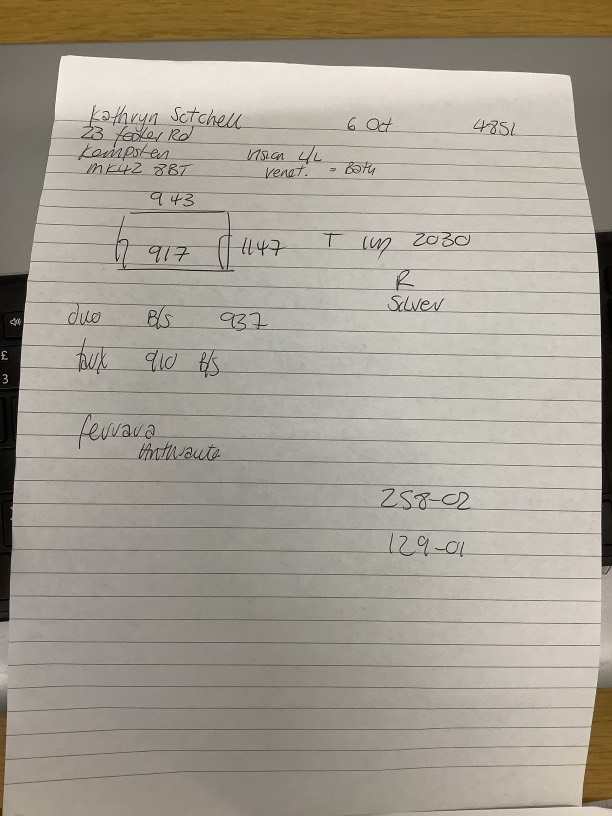 Kathryn Setchell 6 Oct 4851
23 Rd
Kempston Vision L/L
MK42 8BT Venet. = Both
943
917 1147 T 2030
R
Silver
duo B/S 937
910 B/S
ferrara
Anthracite
258-02
129-01
£
3